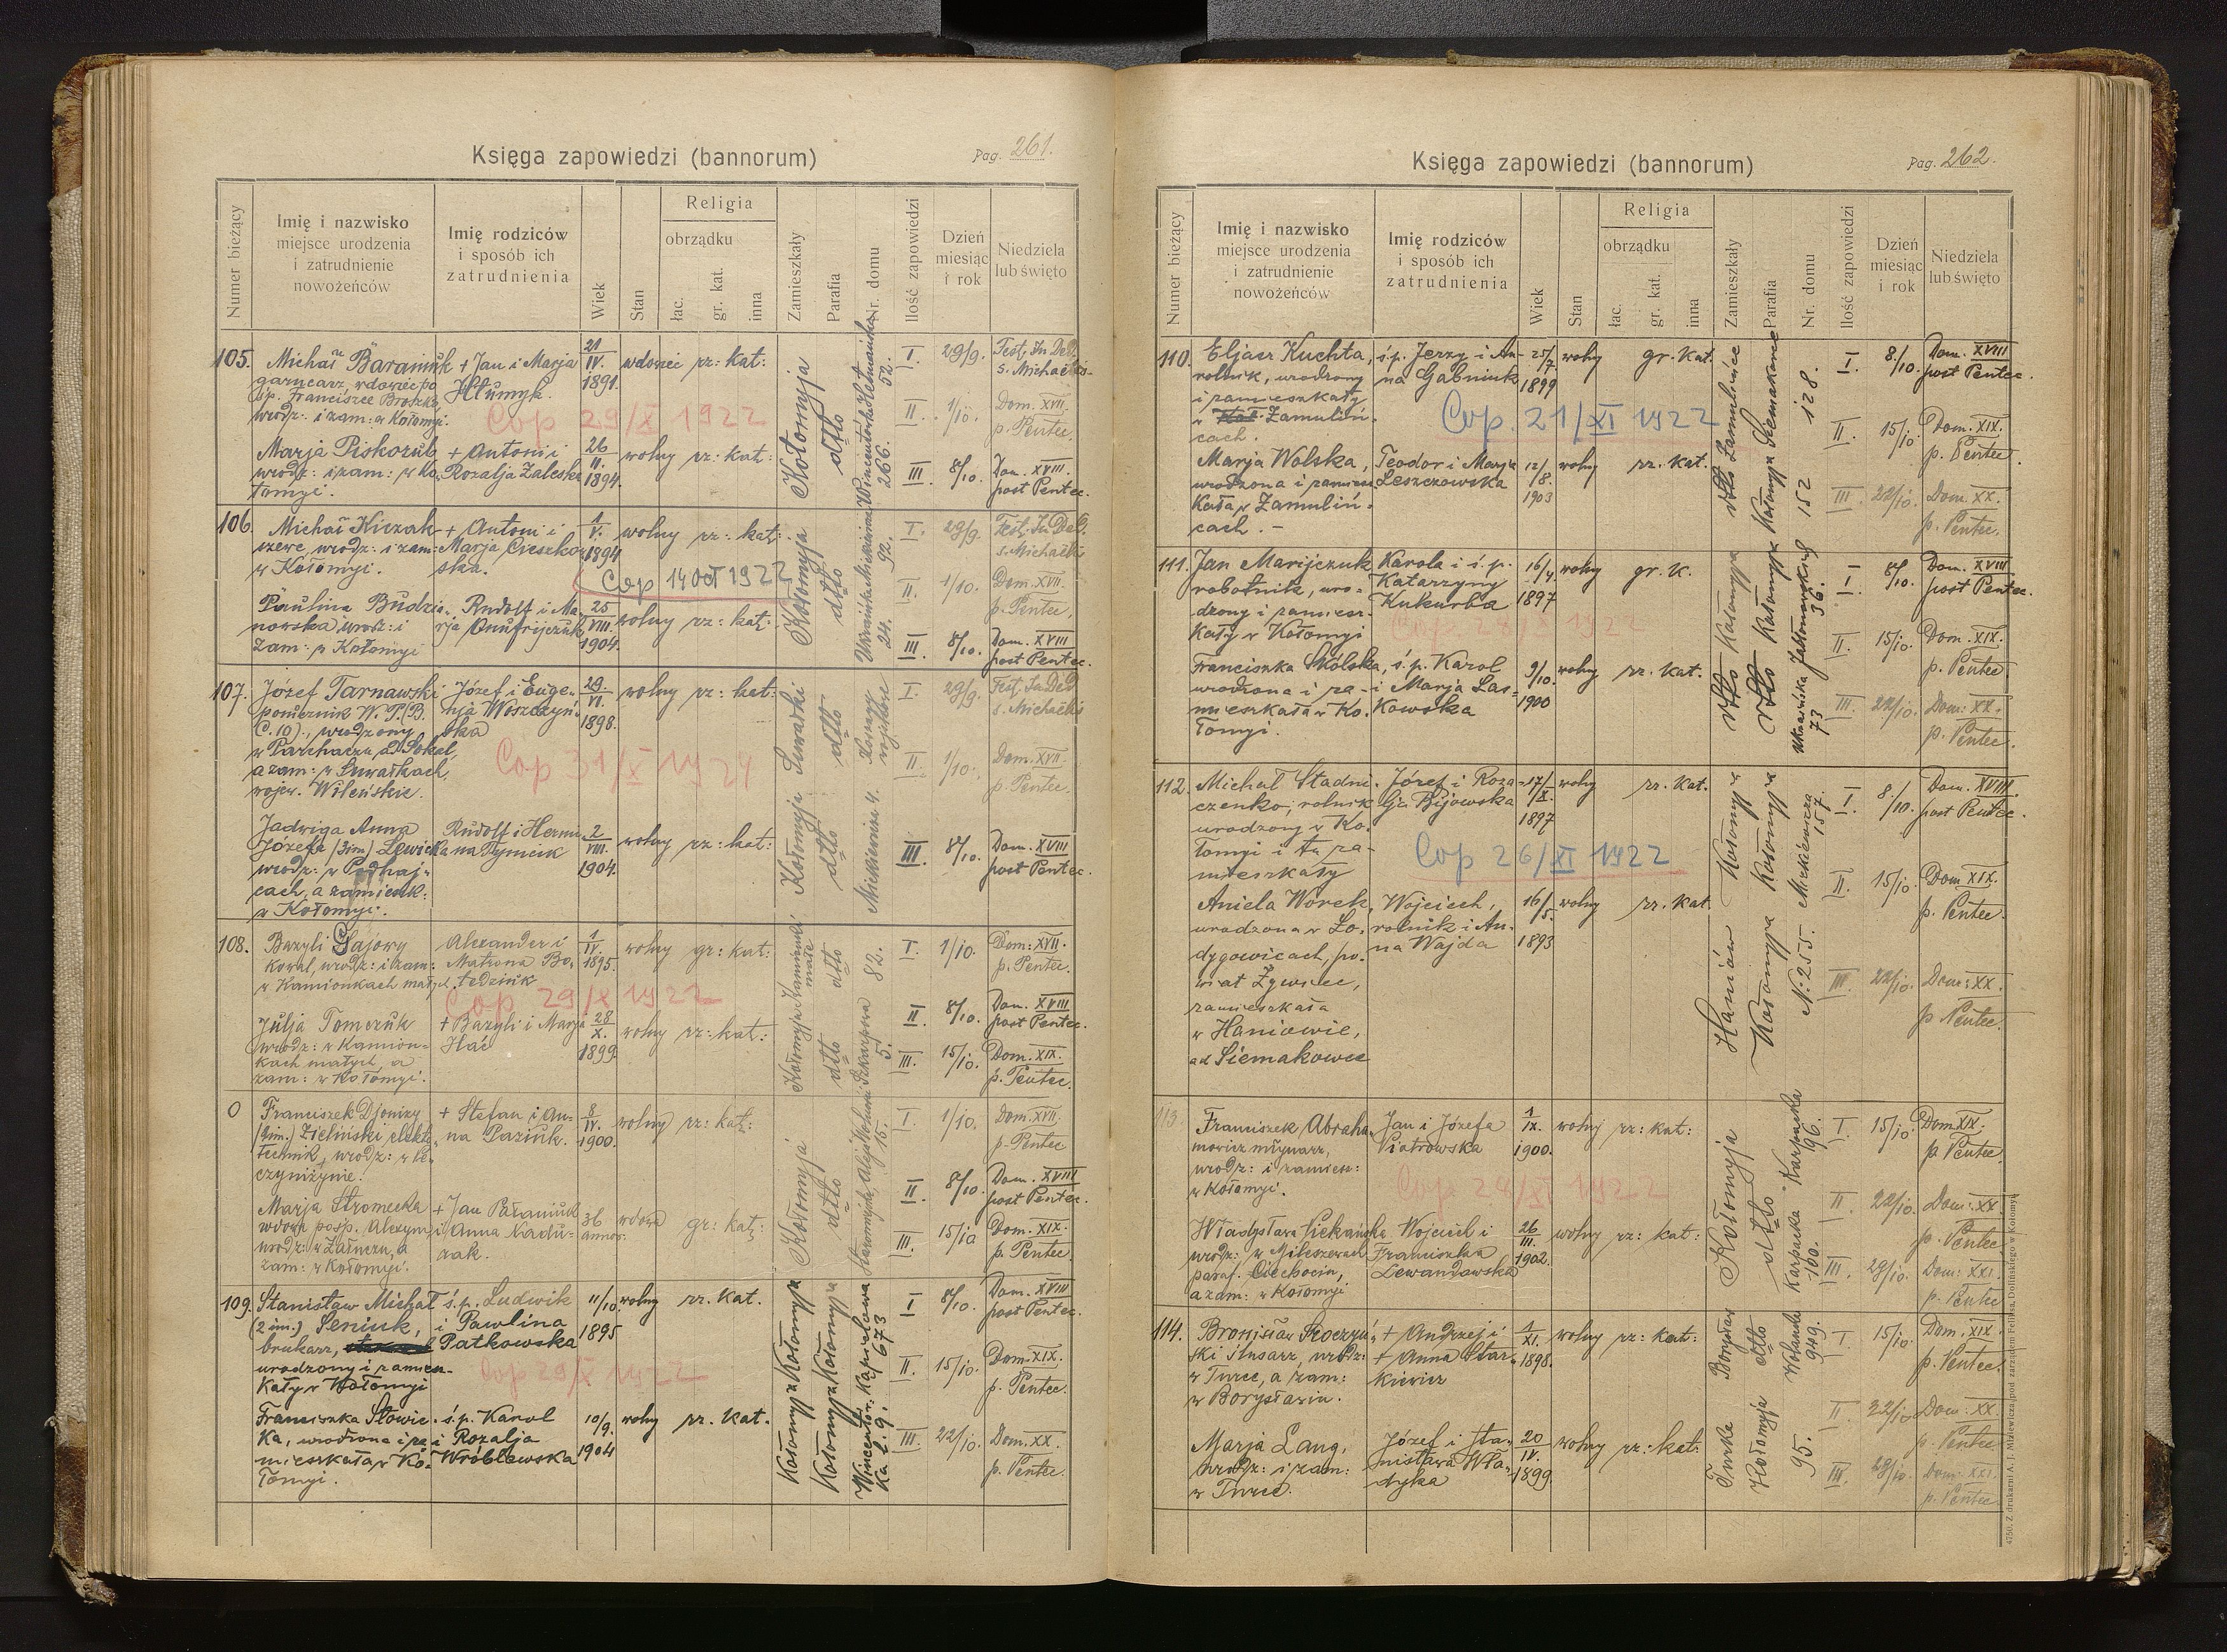 Księga zapowiedzi (bannorum)
Pag. 261.
Numer bieżący
Imię i nazwisko
miejsce urodzenia
i zatrudnienie
nowożeńców
Imię rodziców
i sposób ich
zatrudnienia
Wiek
Stan
Religia
obrządku
łac.
gr. kat.
inna
Zamieszkały
Parafia
Nr. domu
Ilość zapowiedzi
Dzień
miesiąc
i rok
Niedziela
lub święto
105.
Michał Baraniuk
garncarz, wdowiec po
śp. Franciszce Broszko
urodz: i zam: w Kołomyi.
+ Jan i Marja
Hłumyk.
21
IV.
1891.
wdowiec rz: kat:
Cop 29/X 1922
Kołomyja
dtto
52.
I. 29/9. Fest. In Ded.
s. Michaelis
II. 1/10. Dom. XVII.
p. Pentec.
Marja Piskozub
urodz: i zam: w Ko-
łomyi.
+ Antoni i
Rozalja Zaleska
26
II.
1894.
wolny rz: kat:
266.
III 8/10. Dom. XVIII.
post Pentec.
106.
Michał Kiczak
szewc, urodz: i zam:
w Kołomyi.
+ Antoni i
Marja Cieszko-
ska.
1
V.
1894
wolny rz: kat:
Cop 14 Oct 1922
Kołomyja
dtto
92.
I. 29/9. Fest. In Ded.
s. Michaelis
II. 1/10. Dom. XVII.
p. Pentec.
Paulina Budzia-
nowska urodz: i
zam: w Kołomyi
Rudolf i Ma-
rja Onufrijczuk
25
VIII.
1904.
wolny rz: kat:
24.
III. 8/10. Dom. XVIII
post Pentec.
107.
Józef Tarnawski
porucznik W. P. (B.
C. 10)., urodzony
w Parchaczu ad Sokal,
a zam: w Suwałkach,
wojew. Wileńskie.
Józef i Euge-
nja Woszczyń-
ska
29
VI.
1898.
wolny rz: kat:
Cop 31/X 1924
Suwałki
dtto
Koszary
wojskowe
I. 29/9. Fest. In Ded
s. Michaelis
II. 1/10. Dom. XVII.
p. Pentec.
Jadwiga Anna
Józefa (3im) Lewicka
urodz: w Podhaj-
cach, a zamieszk:
w Kołomyi.
Rudolf i Hermi-
na Tymiuk
2
VIII.
1904.
wolny rz: kat:
Kołomyja
dtto
Mickiewicza 4.
III. 8/10. Dom. XVIII
post Pentec.
108.
Bazyli Gajowy
kowal, urodz: i zam:
w Kamionkach małych
Alexander i
Matrona Bo-
ledziuk
1
IV.
1895.
wolny gr: kat:
Cop 29/X 1922
Kamionki
małe
dtto
82.
I. 1/10. Dom: XVII.
p. Pentec.
II. 8/10. Dom. XVIII
post Pentec.
Julja Tomczuk
urodz: w Kamion-
kach małych, a
zam: w Kołomyi.
+ Bazyli i Marja
Hać
28
X.
1899.
wolny rz: kat:
Kołomyja
dtto
Szkarpowa
5.
III. 15/10. Dom. XIX.
p. Pentec.
0
Franciszek Djonizy
(2im.) Zieliński elektro-
technik, urodz: w Pe-
czyniżynie.
+ Stefan i An-
na Paziuk.
8
IV.
1900.
wolny rz: kat:
Kołomyja
dtto
15.
I. 1/10. Dom. XVII.
p. Pentec
II 8/10. Dom. XVIII
post Pentec.
Marja Stromecka
urodz: w Załuczu, a
zam: w Kołomyi.
36
annos.
wdowa gr: kat:
III. 15/10 Dom. XIX.
p. Pentec.
109.
Stanisław Michał
(2 im.) Seniuk,
brukarz,
urodzony i zamiesz-
kały w Kołomyi
ś.p. Ludwik
i Pawlina
Patkowska
11/10.
1895
wolny rz. kat.
Cop 29/X 1922
Kołomyja Kołomyja
Kołomyja Kołomyja
673
I 8/10. Dom. XVIII
post Pentec.
II. 15/10. Dom. XIX.
p. Pentec.
Franciszka Słowic-
ka, urodzona i za-
mieszkała w Ko-
łomyi.
ś.p. Karol
i Rozalja
Wróblewska
10/9.
1904
wolny rz. kat.
III. 22/10. Dom. XX.
p. Pentec.
Księga zapowiedzi (bannorum)
Pag. 262.
Numer bieżący
Imię i nazwisko
miejsce urodzenia
i zatrudnienie
nowożeńców
Imię rodziców
i sposób ich
zatrudnienia
Wiek
Stan
Religia
obrządku
łac.
gr. kat.
inna
Zamieszkały
Parafia
Nr. domu
Ilość zapowiedzi
Dzień
miesiąc
i rok
Niedziela
lub święto
110.
Eljasz Kuchta,
rolnik, urodzony
i zamieszkały
w Zamuliń-
cach.
ś.p. Jerzy i An-
na Gabniuk
25/7
1899
wolny gr. kat.
Cop. 21/XI 1922
Zamulińce
Siemakowce
128.
I. 8./10. Dom. XVIII
post Pentec.
II. 15/10. Dom. XIX.
p. Pentec.
Marja Wolska,
urodzona i zamiesz-
kała w Zamuliń-
cach. -
Teodor i Marja
Leszczowska
12/8.
1903
wolny rz. kat.
dtto
Kołomyja
152
III. 22/10. Dom. XX.
p. Pentec.
111.
Jan Marijczuk
robotnik, uro-
dzony i zamiesz-
kały w Kołomyi
Karola i ś.p.
Katarzyny
Kukurba
16/4.
1897
wolny gr. k.
Kołomyja
Kołomyja
36.
I. 8/10. Dom. XVIII
post Pentec.
II. 15/10. Dom. XIX.
p. Pentec.
Franciszka Skólska,
urodzona i za-
mieszkała w Ko-
łomyi.
ś.p. Karol
i Marja Las-
kowska
9/10.
1900
wolny rz. kat.
dtto
dtto
Ukraińska
73
III. 22/10. Dom: XX.
p. Pentec.
112.
Michał Stadni-
czenko, rolnik
urodzony w Ko-
łomyi i tu za-
mieszkały
Józef i Roza-
lja Bijowska
17/X.
1897
wolny rz. kat.
Cop 26/XI 1922
Kołomyja
Kołomyja
Mickiewicza
157.
I. 8./10. Dom. XVIII.
post Pentec.
II. 15/10. Dom XIX.
p. Pentec.
Aniela Worek,
urodzona w Ło-
dygowicach, po-
wiat Żywiec,
zamieszkała
w Haniowie,
ad Siemakowce
Wojciech,
rolnik i An-
na Wajda
16/5.
1893
wolny rz. kat.
Haniów
Kołomyja
N: 255.
III. 22/10. Dom: XX.
p. Pentec.
113.
Franciszek Abraha-
mowicz młynarz,
urodz: i zamiesz:
w Kołomyi.
Jan i Józefa
Piotrowska
1
IX.
1900.
wolny rz: kat:
Kołomyja
dtto
Karpacka
96.
I 15/10. Dom XIX.
p. Pentec.
II. 22/10. Dom: XX.
p. Pentec
Władysława Piekańska
urodz: w Mileszewach
paraf. Ciechocin,
a zam: w Kołomyi
Wojciech i
Franciszka
Lewandowska
26
III.
1902.
wolny rz: kat:
Karpacka
100.
III. 29/10. Dom: XXI.
p. Pentec
114.
Bronisław Skoczyń-
ski ślusarz, urodz:
w Turce, a zam:
w Borysławiu.
+ Andrzej i
+ Anna Star-
kiewicz
1
XI.
1898.
wolny rz: kat:
Borysław
dtto
Wolanka
949.
I 15/10. Dom. XIX.
p. Pentec.
II. 22/10 Dom: XX.
p. Pentec
Marja Lang,
urodz: i zam:
w Turce.
Józef i Sta-
nisława Wła-
dyka
20
IV.
1899.
wolny rz: kat:
Turka
Kołomyja
95.
III. 29/10. Dom: XXI.
p. Pentec.
4750. Z drukarni A. J. Miziewicza pod zarządem Feliksa Dolińskiego w Kołomyi.